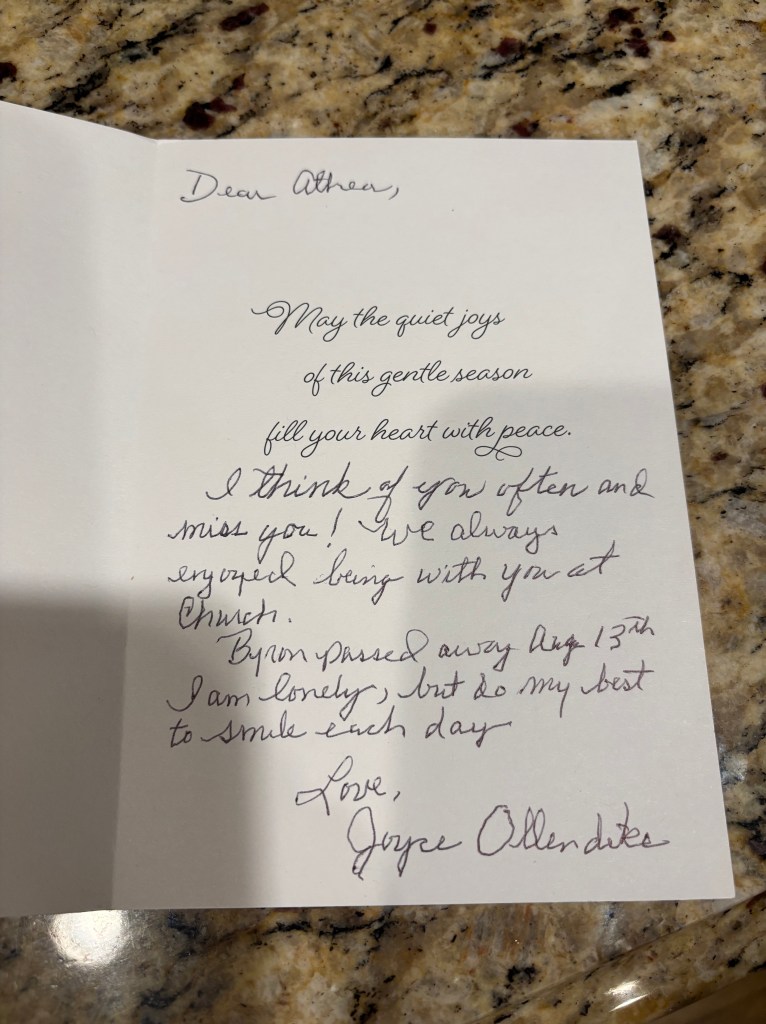 Dear Athea,
May the quiet joys
of this gentle season
fill your heart with peace.
I think of you often and
miss you! We always
enjoyed being with you at
Church.
Byron passed away Aug 13th
I am lonely, but do my best
to smile each day
Love,
Joyce Ollendike